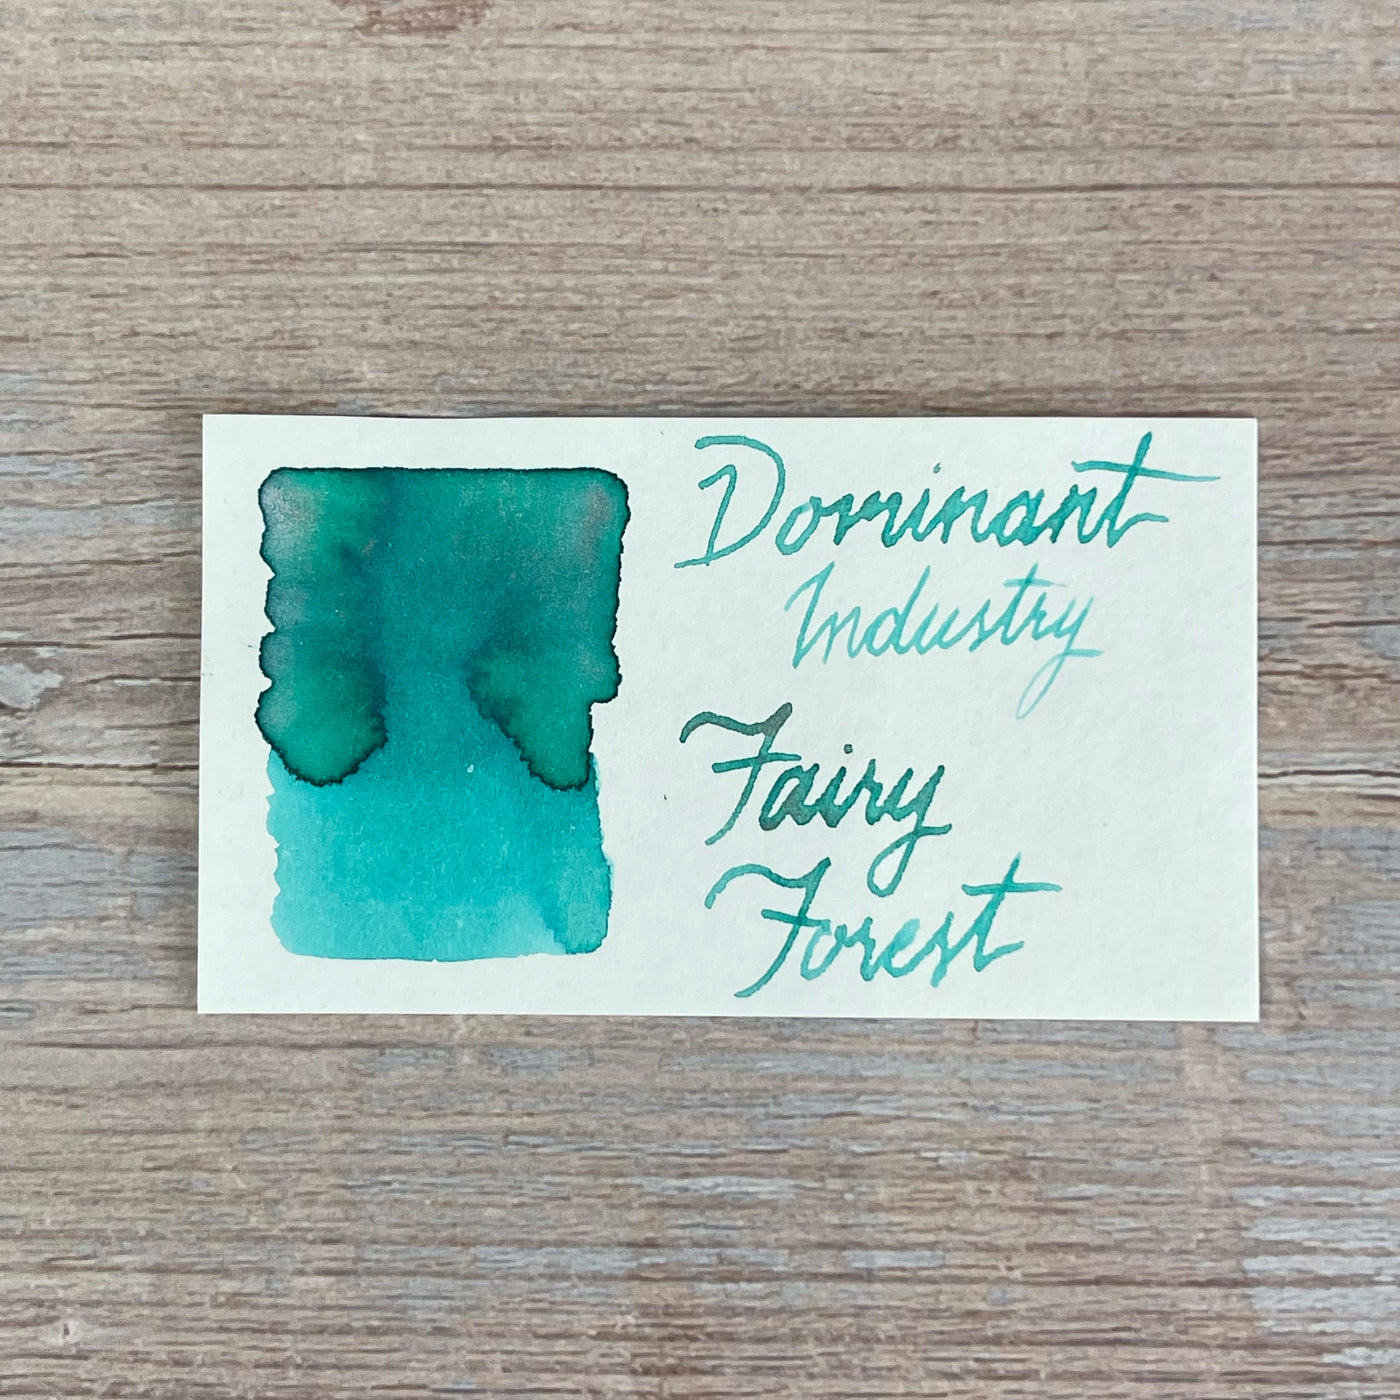 Dominant
Industry
Fairy
Forest